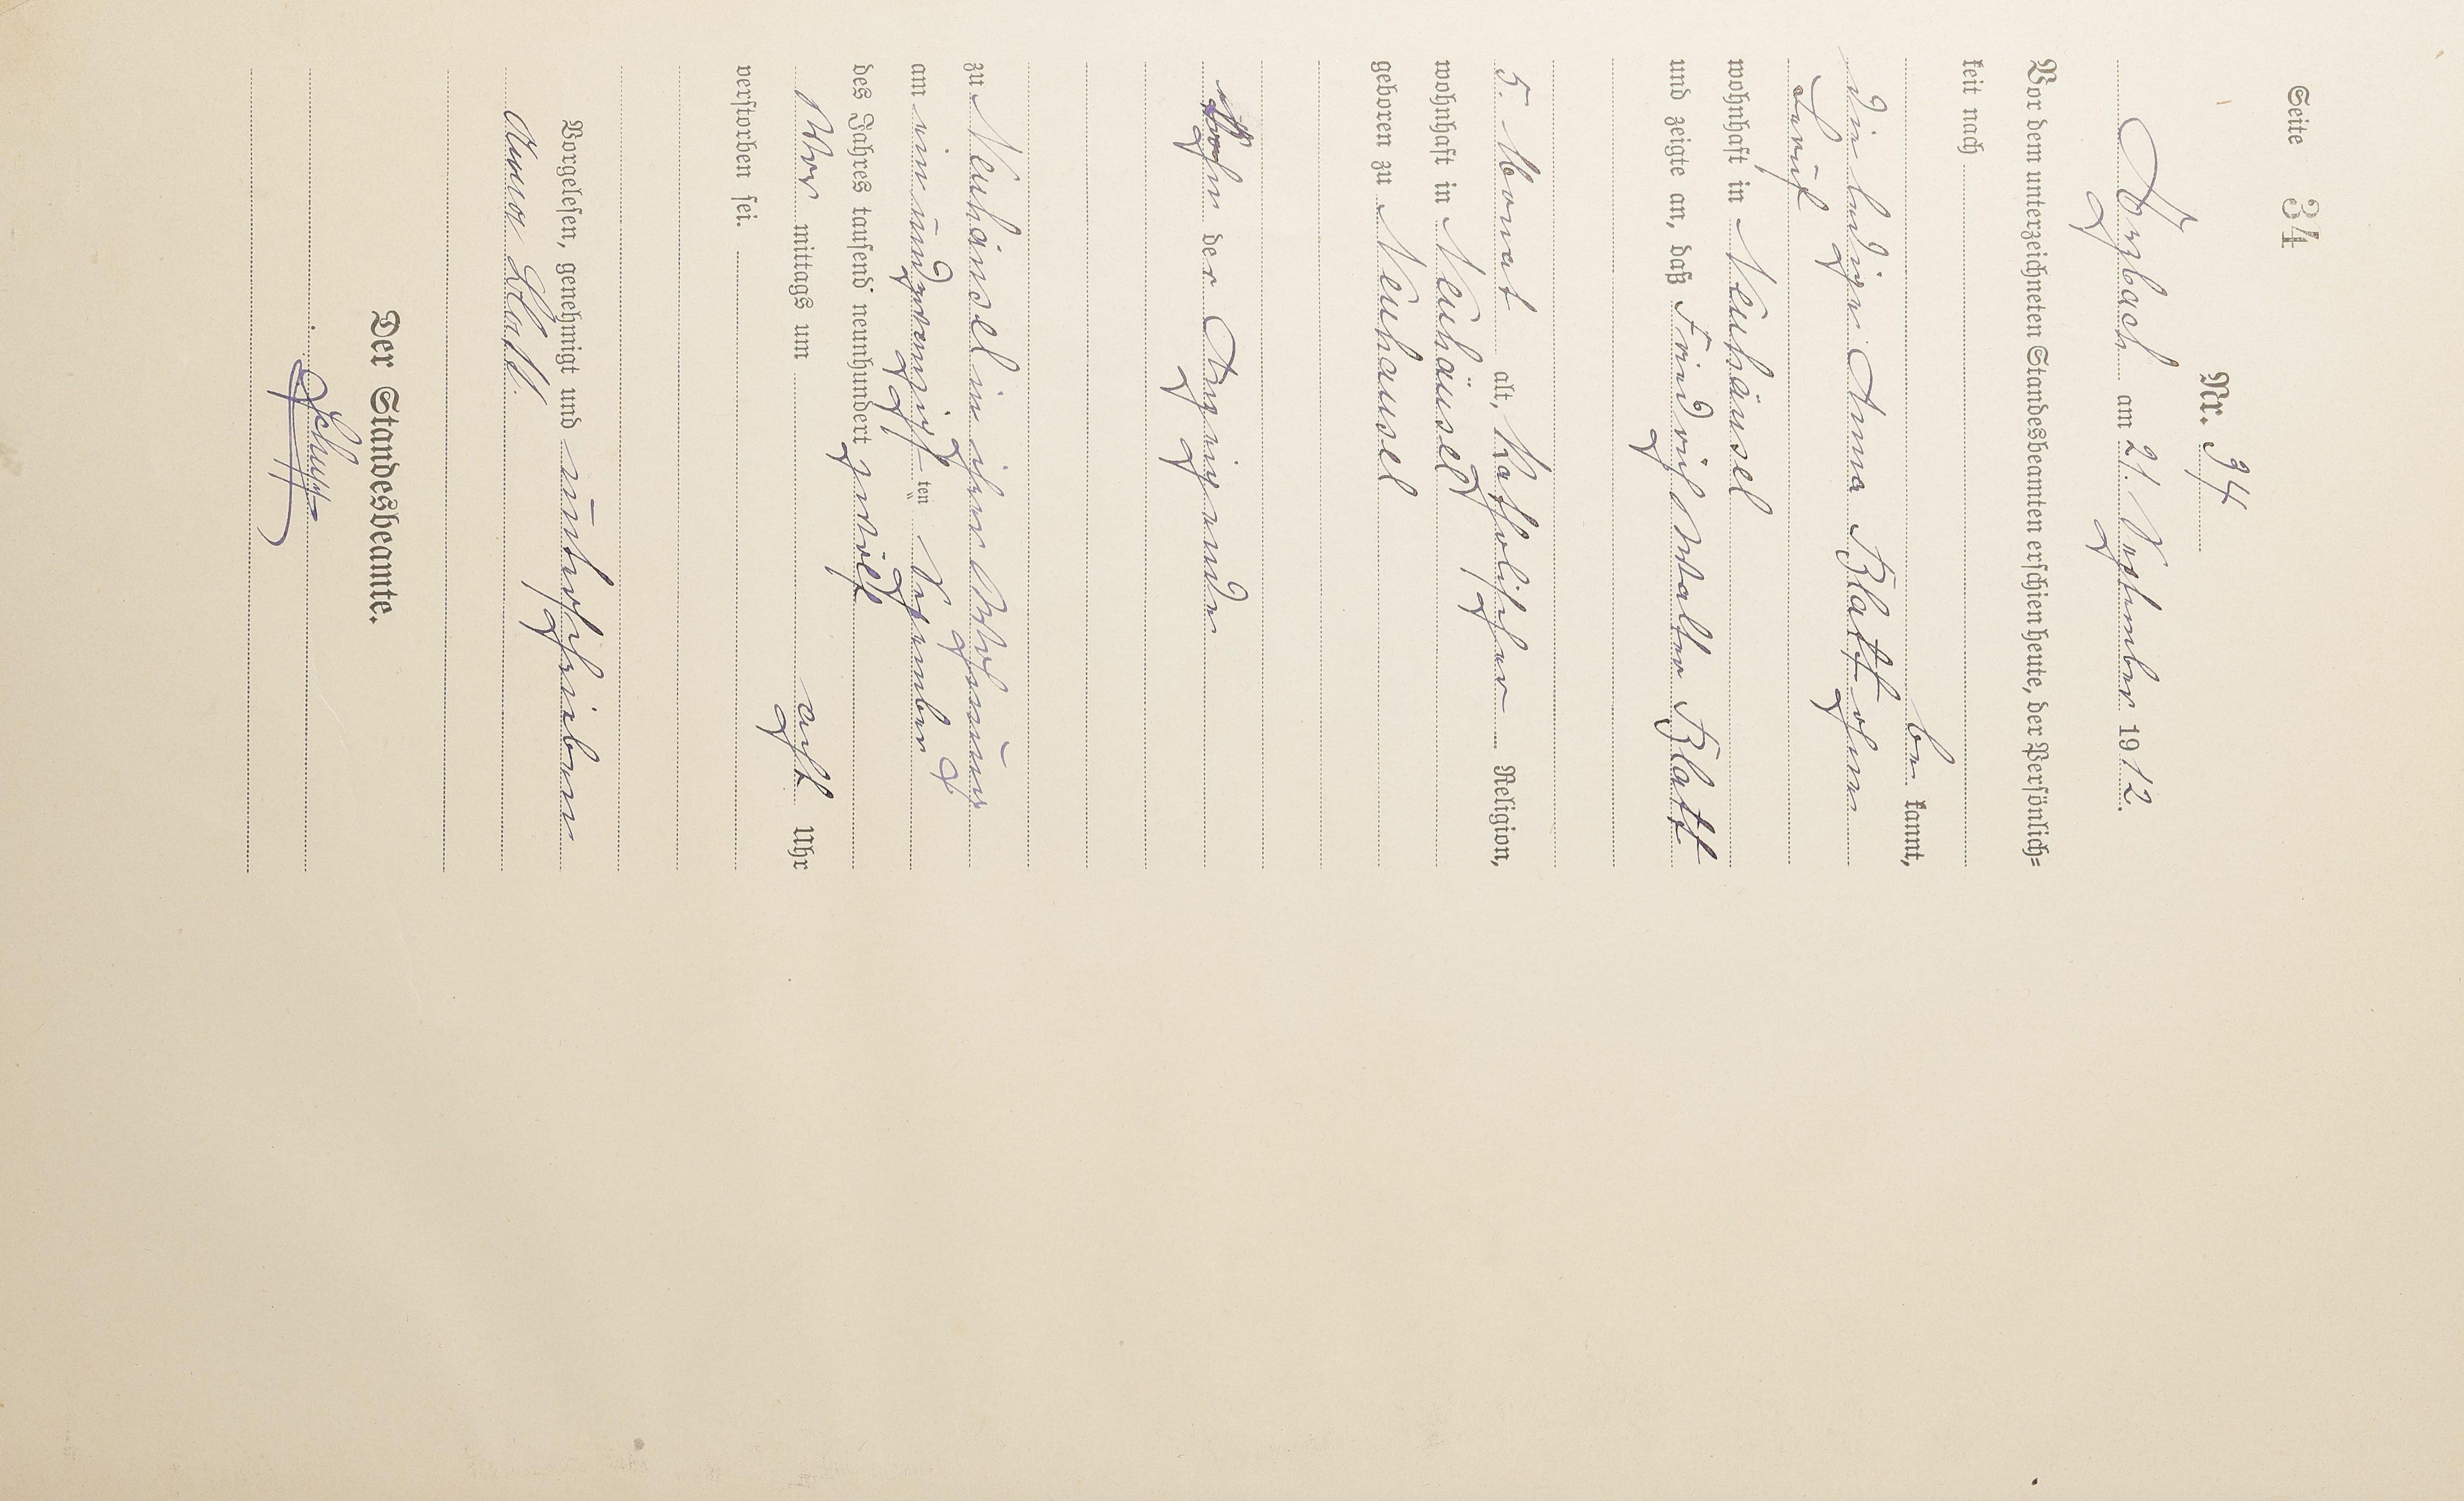 Seite 34
Nr. 34
Arzbach am 21. September 1912.
Vor dem unterzeichneten Standesbeamten erschien heute, der Persönlich-
keit nach
be kannt,
die ledige Anna Blatt ohne
Beruf
wohnhaft in Neuhäusel
und zeigte an, daß Friedrich Walter Blatt
5. Monat alt, katholischer Religion,
wohnhaft in Neuhäusel
geboren zu Neuhäusel
Sohn der Anzeigenden
zu Neuhäusel in ihrer Wohnung
am ein und zwanzigsten September
des Jahres tausend neunhundert zwölf
Vor mittags um acht Uhr
verstorben sei.
Vorgelesen, genehmigt und unterschrieben
Anna Blatt.
Der Standesbeamte.